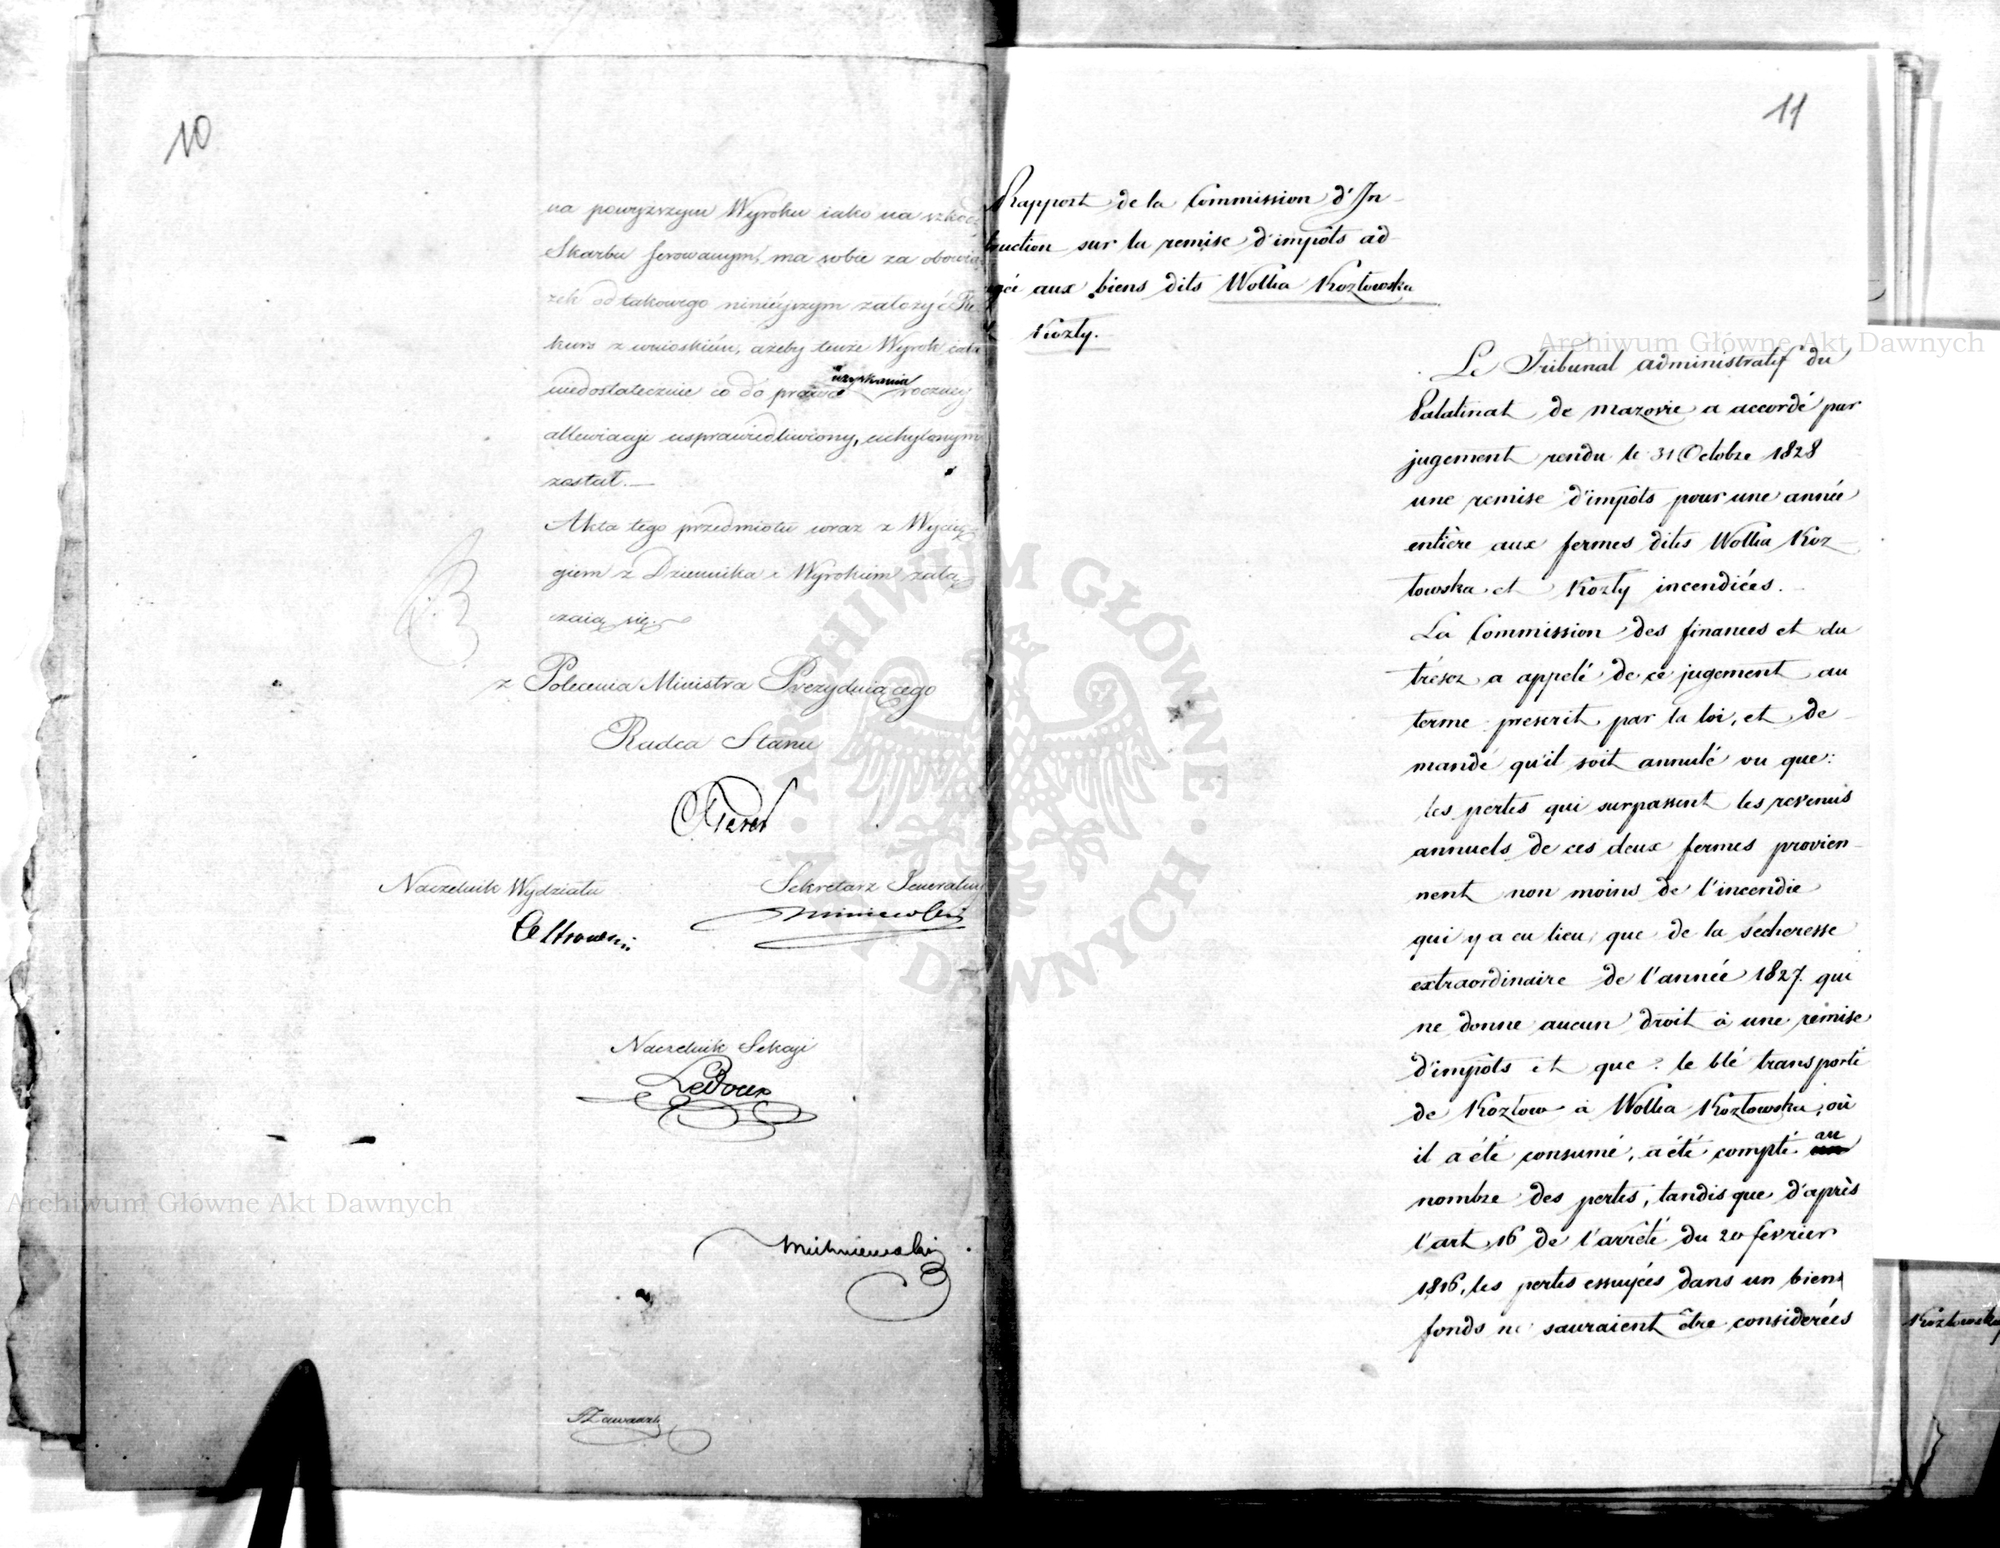 10
na powyższym Wyroku iako na szkodę
Skarbu ferowanym, ma sobie za obowią
zek od takowego ninieyszym założyć Re
kurs z wnioskiem, ażeby tenże Wyrok iako
niedostatecznie co do prawa uzyskania roczney
allewiacyi usprawiedliwiony, uchylonym
został.
Akta tego przedmiotu wraz z Wycią
giem z Dziennika i Wyrokiem załą
czaią się.
z Polecenia Ministra Prezyduiącego
Radca Stanu
Naczelnik Wydziału
Sekretarz Jeneralny
Naczelnik Sekcyi
LeDoux
11
Rapport de la Commission d'In
truction sur la remise d'impôts ad
gée aux biens dits Wolka Kozłowska
t Kozły.
Le Tribunal administratif du
Palatinat de mazovie a accordé par
jugement rendu le 31 Octobre 1828
une remise d'impôts pour une année
entière aux fermes dites Wolka Koz
łowska et Kozły incendiées.
La Commission des finances et du
trésor a appelé de ce jugement au
terme prescrit par la loi, et de
mande qu'il soit annulé vu que:
les pertes qui surpassent les revenus
annuels de ces deux fermes provien
nent non moins de l'incendie
qui y a eu lieu, que de la sécheresse
extraordinaire de l'année 1827. qui
ne donne aucun droit à une remise
d'impôts et que: le blé transporté
de Kozłow à Wolka Kozłowska, où
il a été consumé, a été compté au
nombre des pertes, tandis que d'après
l'art 16 de l'arrêté du 20 février
1816, les pertes essuyées dans un bien
fonds ne sauraient être considerées
Archiwum Główne Akt Dawnych
Archiwum Główne Akt Dawnych
ARCHIWUM GŁÓWNE · AKT DAWNYCH ·